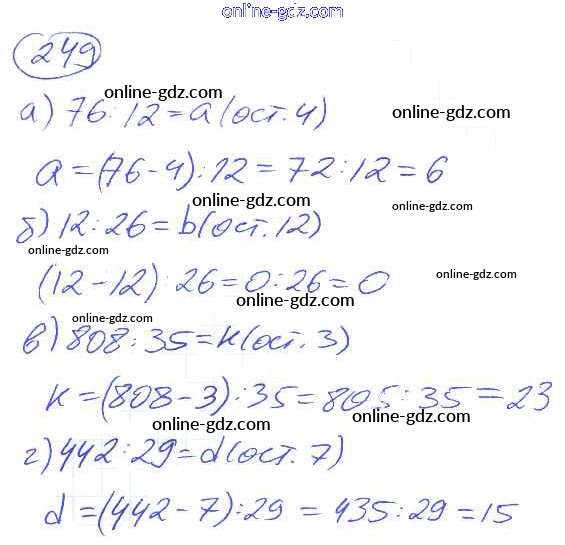 online-gdz.com
249
online-gdz.com
online-gdz.com
а) 76 : 12 = a (ост. 4)
a = (76 - 4) : 12 = 72 : 12 = 6
online-gdz.com
online-gdz.com
б) 12 : 26 = b (ост. 12)
online-gdz.com
(12 - 12) : 26 = 0 : 26 = 0
online-gdz.com
online-gdz.com
online-gdz.com
в) 808 : 35 = к (ост. 3)
к = (808 - 3) : 35 = 805 : 35 = 23
online-gdz.com
online-gdz.com
г) 442 : 29 = d (ост. 7)
d = (442 - 7) : 29 = 435 : 29 = 15